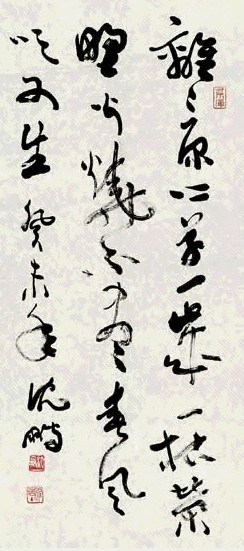 離々原上草一歲一枯榮
野火燒不盡春風
吹又生 癸未年 沈鵬